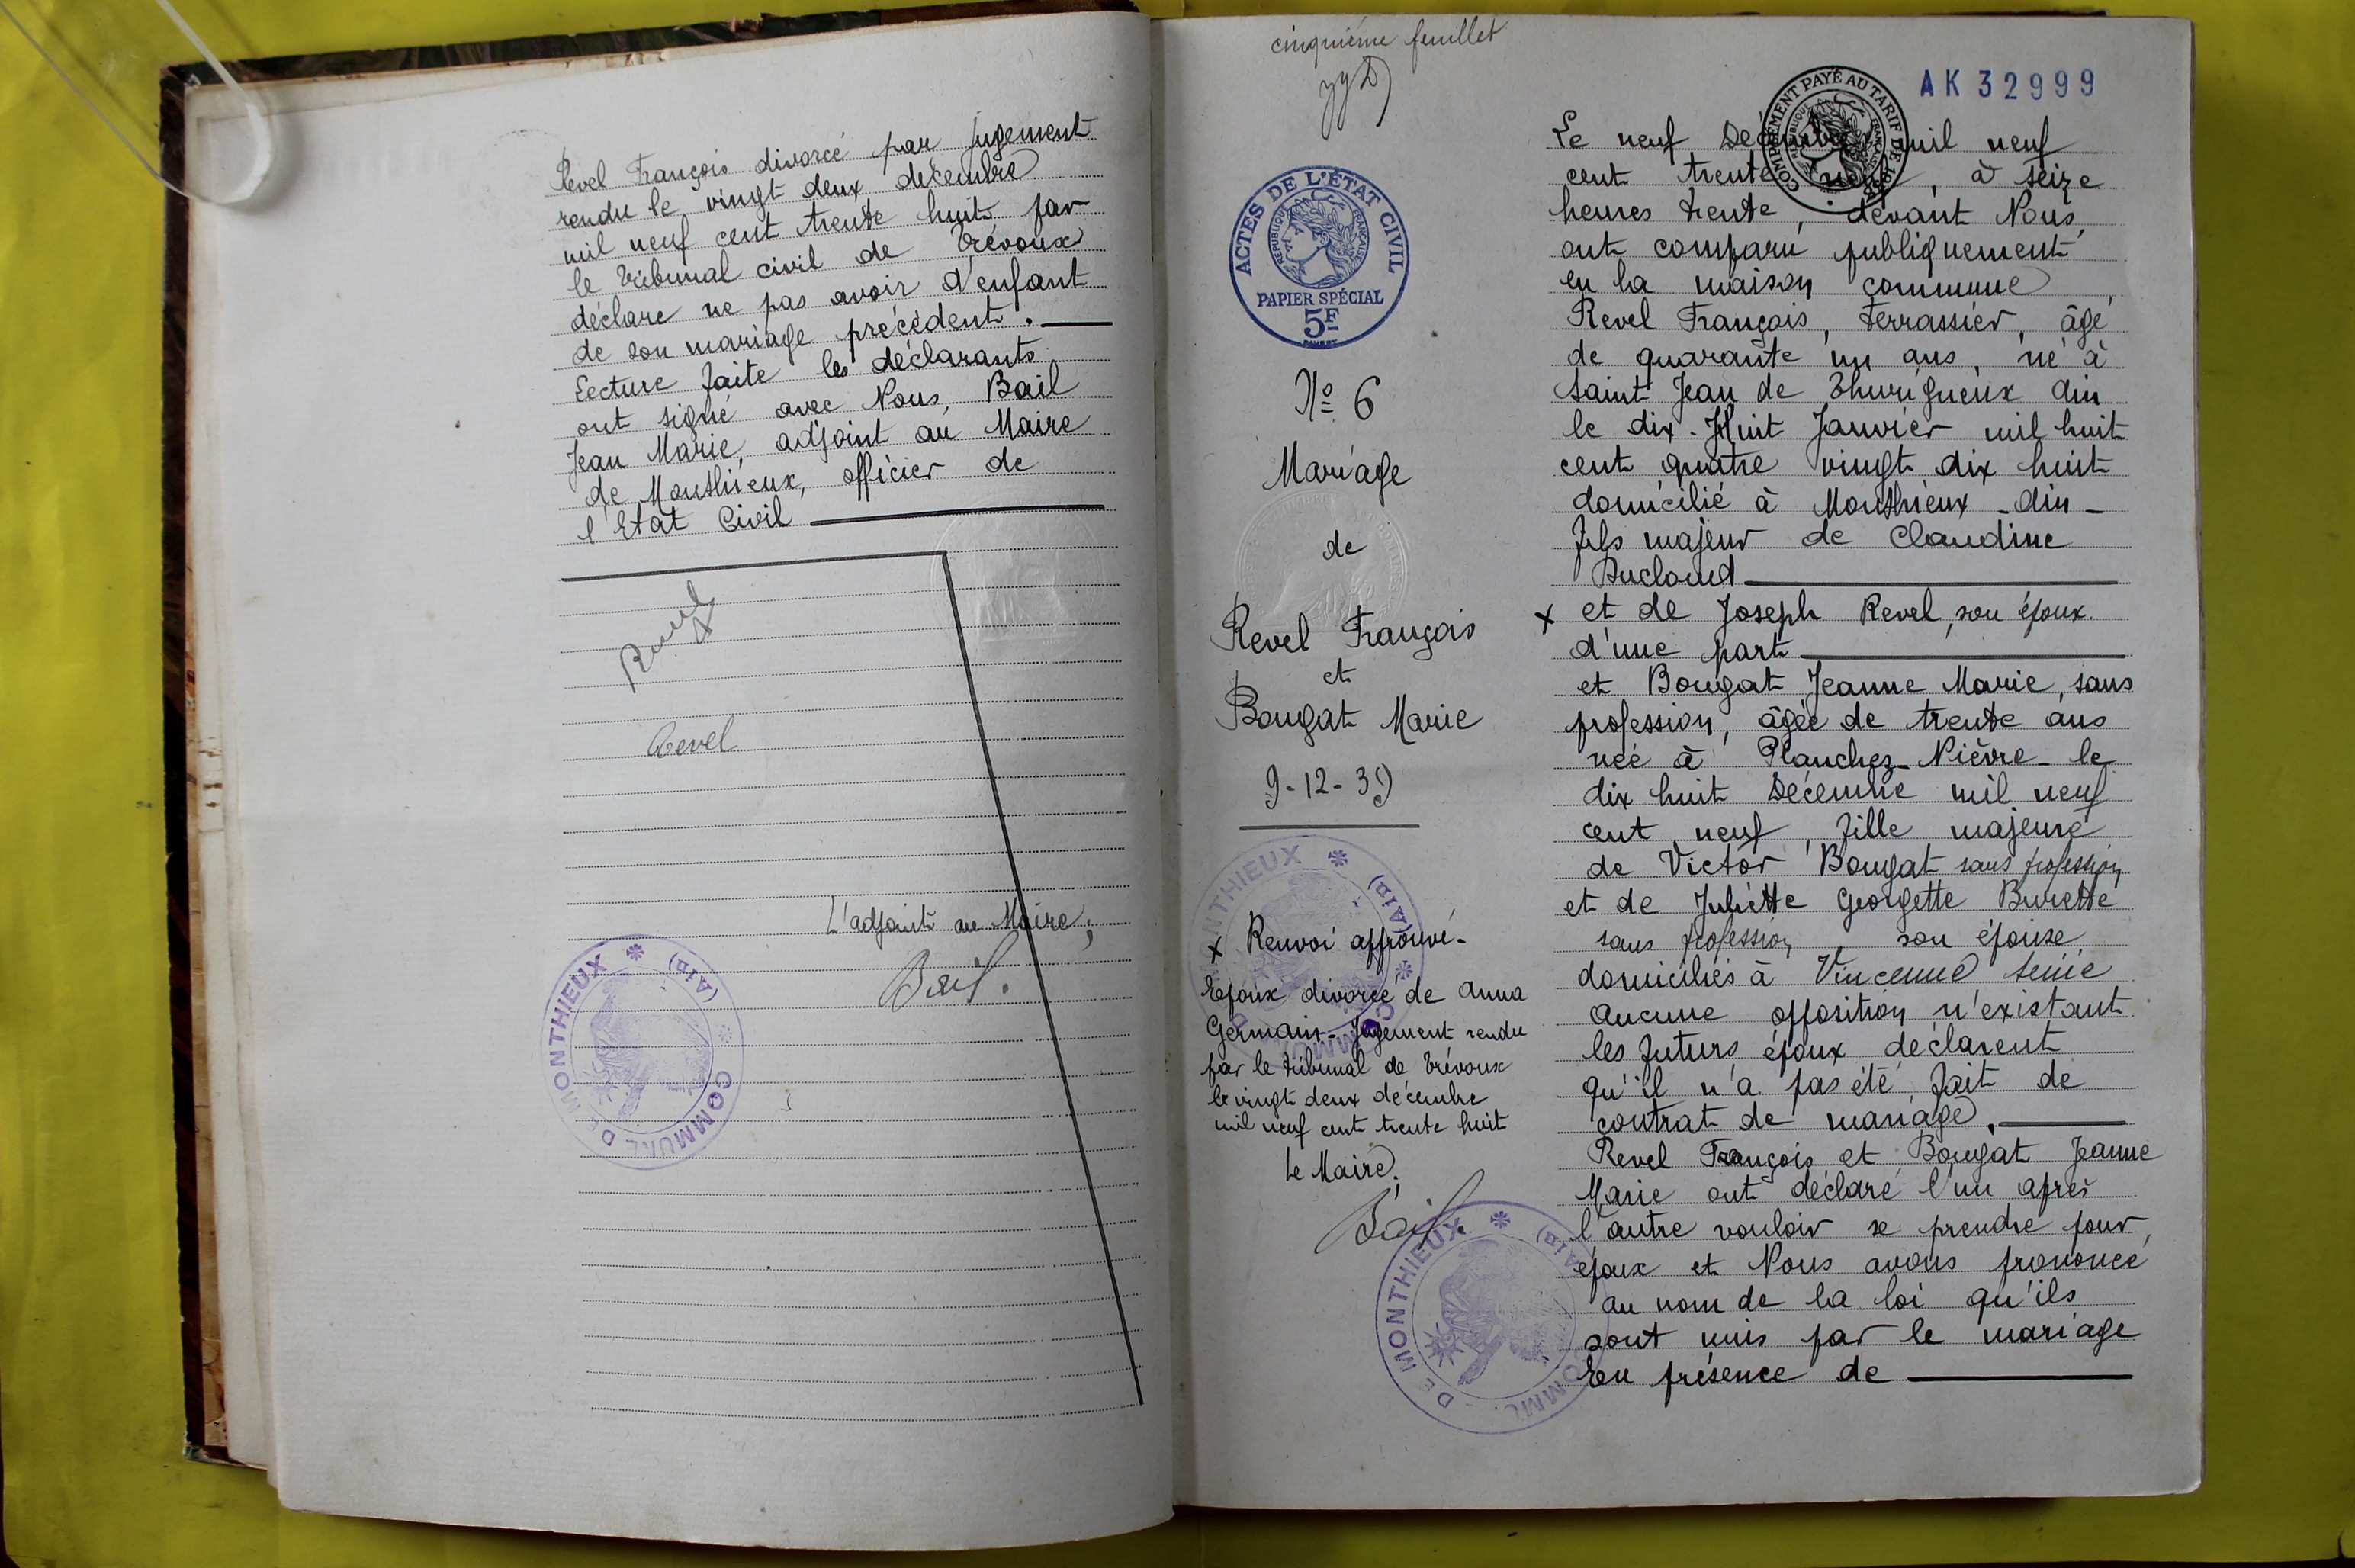 Revel François divorcé par jugement
rendu le vingt deux décembre
mil neuf cent trente huit par
le tribunal civil de Trévoux
déclare ne pas avoir d'enfant
de son mariage précédent.
Lecture faite les déclarants
ont signé avec Nous, Bail
Jean Marie, adjoint au Maire
de Monthieux, officier de
l'Etat Civil
Revel
L'adjoint au Maire,
Bail.
COMMUNE DE MONTHIEUX (Ain)
cinquième feuillet
ACTES DE L'ÉTAT CIVIL
RÉPUBLIQUE FRANÇAISE
PAPIER SPÉCIAL
5F
No 6
Mariage
de
Revel François
et
Bougat Marie
9-12-39
COMMUNE DE MONTHIEUX (Ain)
x Renvoi approuvé-
Epoux divorcé de Anna
Germain. Jugement rendu
par le tribunal de Trévoux
le vingt deux décembre
mil neuf cent trente huit
Le Maire,
Bail.
COMMUNE DE MONTHIEUX (Ain)
AK 32999
COMPLÉMENT PAYÉ AU TARIF DE
RÉPUBLIQUE FRANÇAISE
Le neuf Décembre mil neuf
cent trente neuf, à seize
heures trente, devant Nous,
ont comparu publiquement
en la maison commune
Revel François, terrassier, âgé
de quarante un ans, né à
Saint Jean de Thurigneux Ain
le dix-Huit Janvier mil huit
cent quatre vingt dix huit
domicilié à Monthieux - Ain -
fils majeur de Claudine
Ducloud
x et de Joseph Revel, son époux.
d'une part
et Bougat Jeanne Marie, sans
profession, âgée de trente ans
née à Planchez - Nièvre - le
dix huit Décembre mil neuf
cent neuf, fille majeure
de Victor Bougat sans profession
et de Juliette Georgette Burette
sans profession, son épouse
domiciliés à Vincennes Seine
Aucune opposition n'existant
les futurs époux déclarent
qu'il n'a pas été fait de
contrat de mariage.
Revel François et Bougat Jeanne
Marie ont déclaré l'un après
l'autre vouloir se prendre pour
époux et Nous avons prononcé
au nom de la loi qu'ils
sont unis par le mariage
En présence de